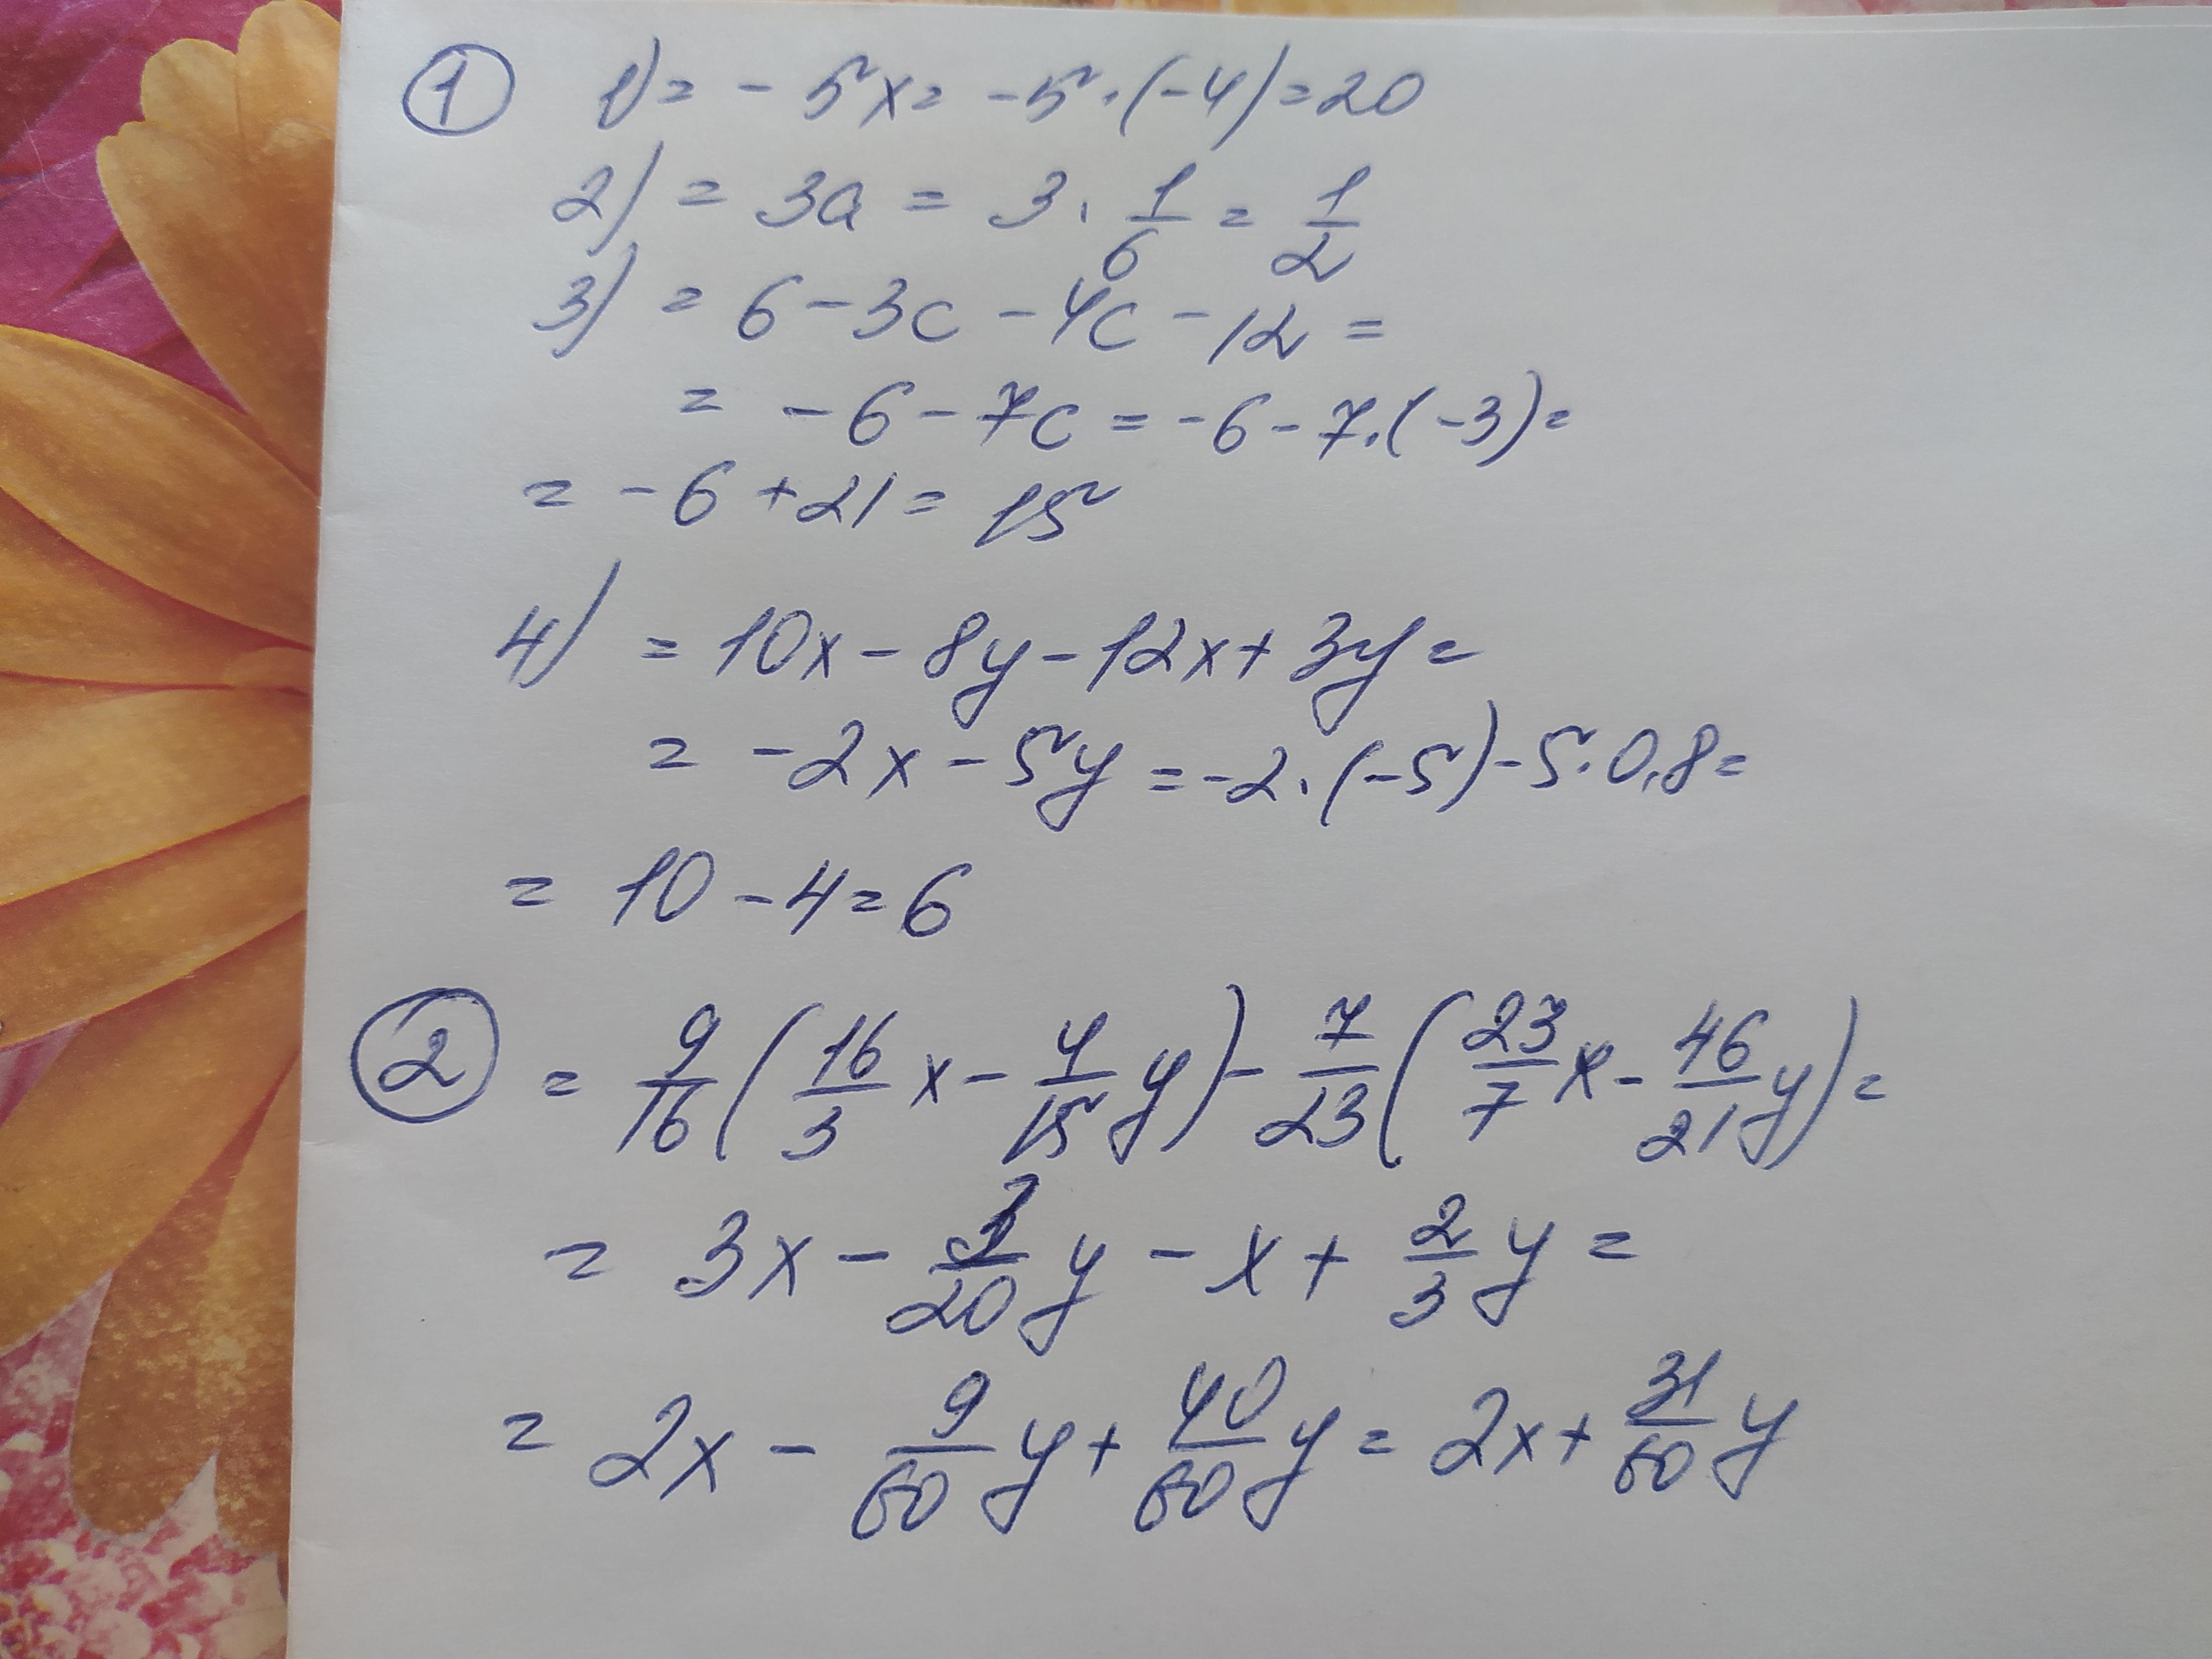 ① 1) = -5x = -5·(-4) = 20
2) = 3a = 3·1/6 = 1/2
3) = 6-3c-4c-12 =
= -6-7c = -6-7·(-3) =
= -6+21 = 15
4) = 10x-8y-12x+3y =
= -2x-5y = -2·(-5)-5·0,8 =
= 10-4 = 6
② = 9/16(16/3x-4/15y)-7/23(23/7x-46/21y) =
= 3x-3/20y-x+2/3y =
= 2x-9/60y+40/60y = 2x+31/60y